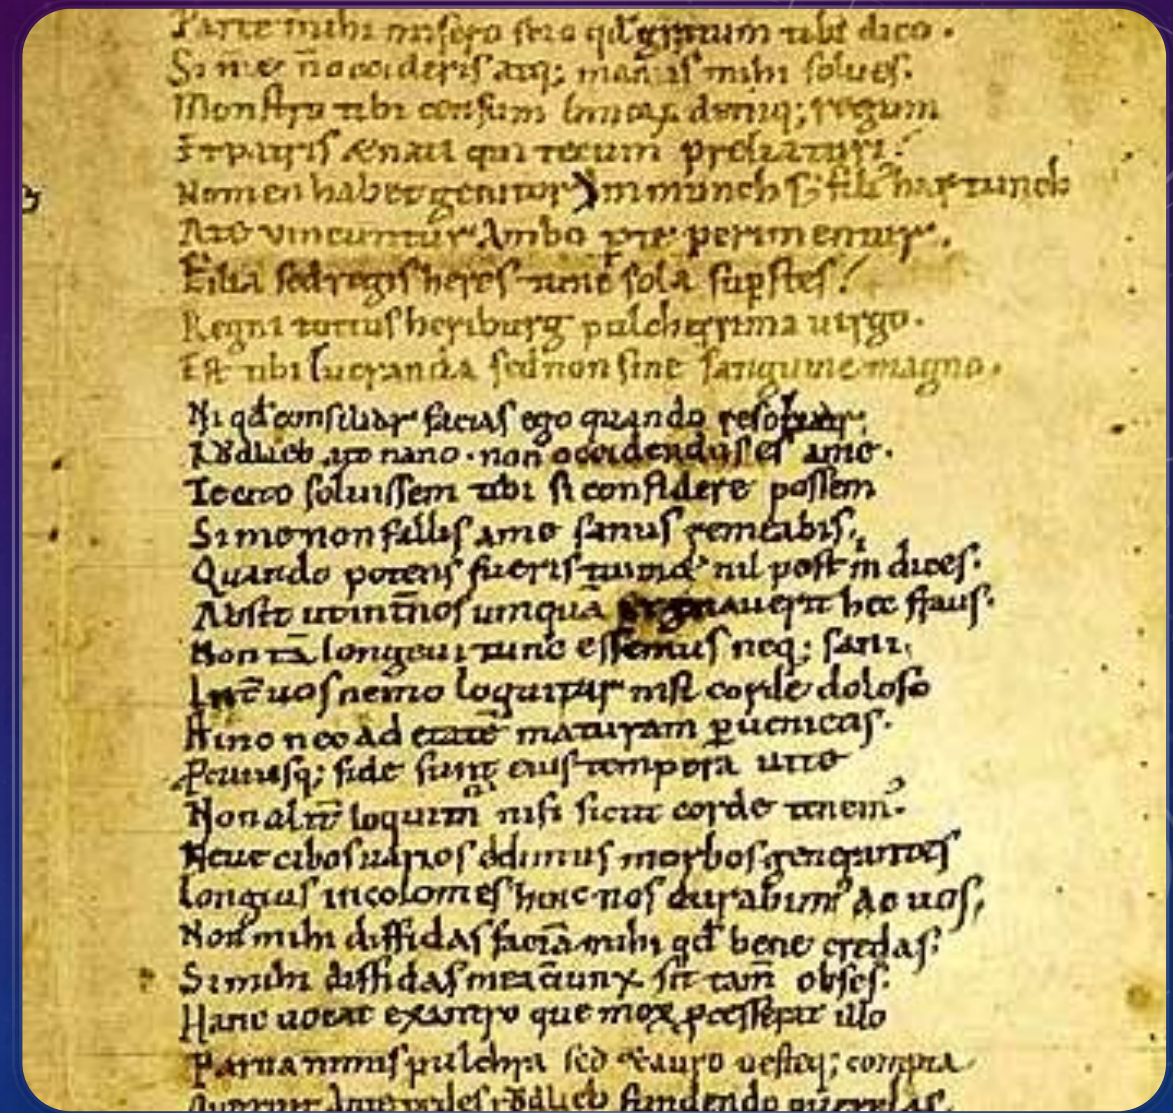 Parce mihi misero scio qđ gratum tibi dico.
Si me n̄ occideris atq; man; mihi solues.
Monstro tibi censum binoꝝ denoq; regum
Et patris & nati qui tecum preliaturi.
Nomen habet genitor Immunch s; fili hartunch
A te vincuntur Ambo p te perimentur.
Filia sed regis heres tunc sola supstes.
Regni totius heriburg pulcherrima uirgo.
Est tibi lucranda sed non sine sanguine magno.
Ni qđ consiliar facias ego quando resoluar.
Rǒdlieb ait nano. non occidendus es a me.
Te cito soluissem tibi si confidere possem
Si me non fallis a me sanus remeabis.
Quando potens fueris tunc nil post m̄ dices.
Absit ut int̄ nos umquā regnauerit hec fraus.
Non tā longeui tunc essemus neq; sani.
Int̄ uos nemo loquitur nisi corde doloso
Hinc nec ad etatē maturam ꝑuenietis.
Pro cuiusq; fide sunt eius tempora uite
Non alit̄ loquim̄ nisi sicut corde tenem̄.
Neue cibos uarios edimus morbos generantes
Longius incolomes hinc nos durabim' ac uos.
Non mihi diffidas faciā mihi qđ bene credas.
Si mihi diffidas mea cūnx sit tam̄ obses.
Hanc uocat ex antro que mox ꝓcesserat illo
Parua nimis pulchra sed & auro uesteq; compta